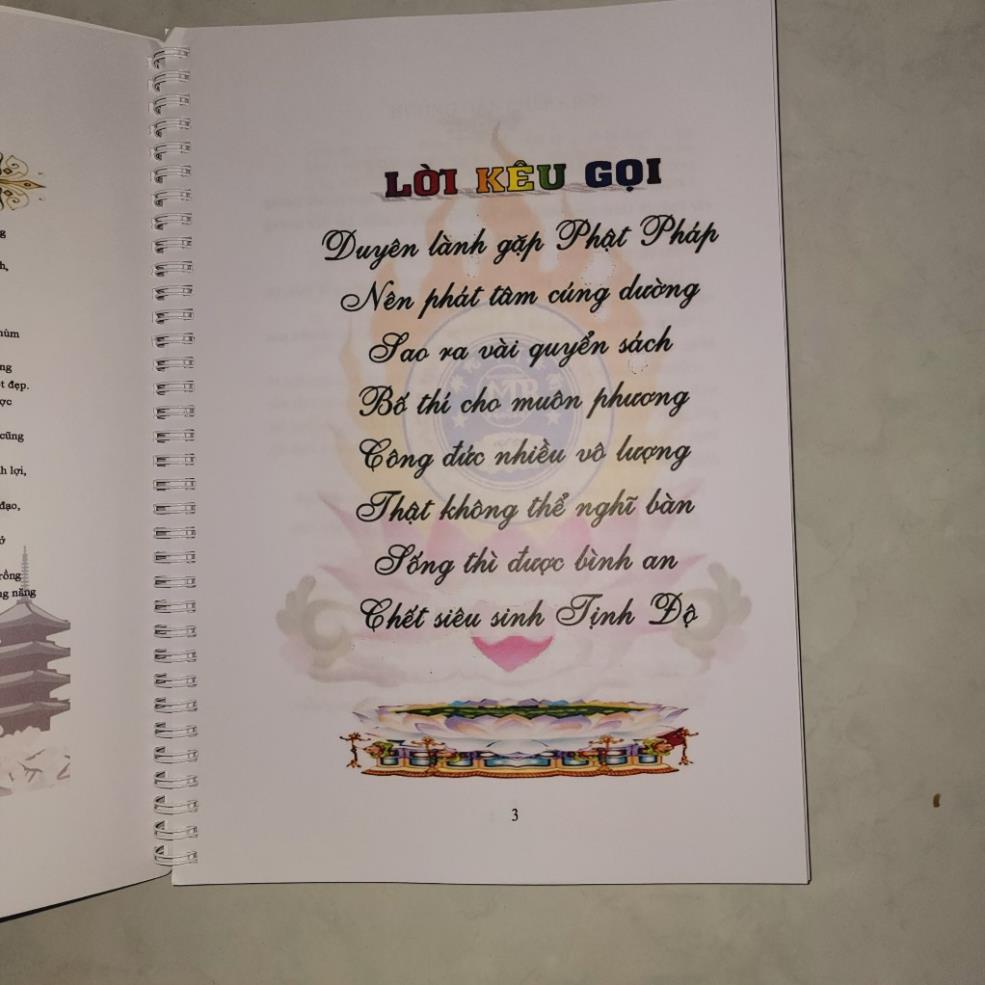 g
h,
hùm
ng
t đẹp.
ược
cũng
h lợi,
đạo,
ở
rồng
ng năng
LỜI KÊU GỌI
Duyên lành gặp Phật Pháp
Nên phát tâm cúng dường
Sao ra vài quyển sách
Bố thí cho muôn phương
Công đức nhiều vô lượng
Thật không thể nghĩ bàn
Sống thì được bình an
Chết siêu sinh Tịnh Độ
3